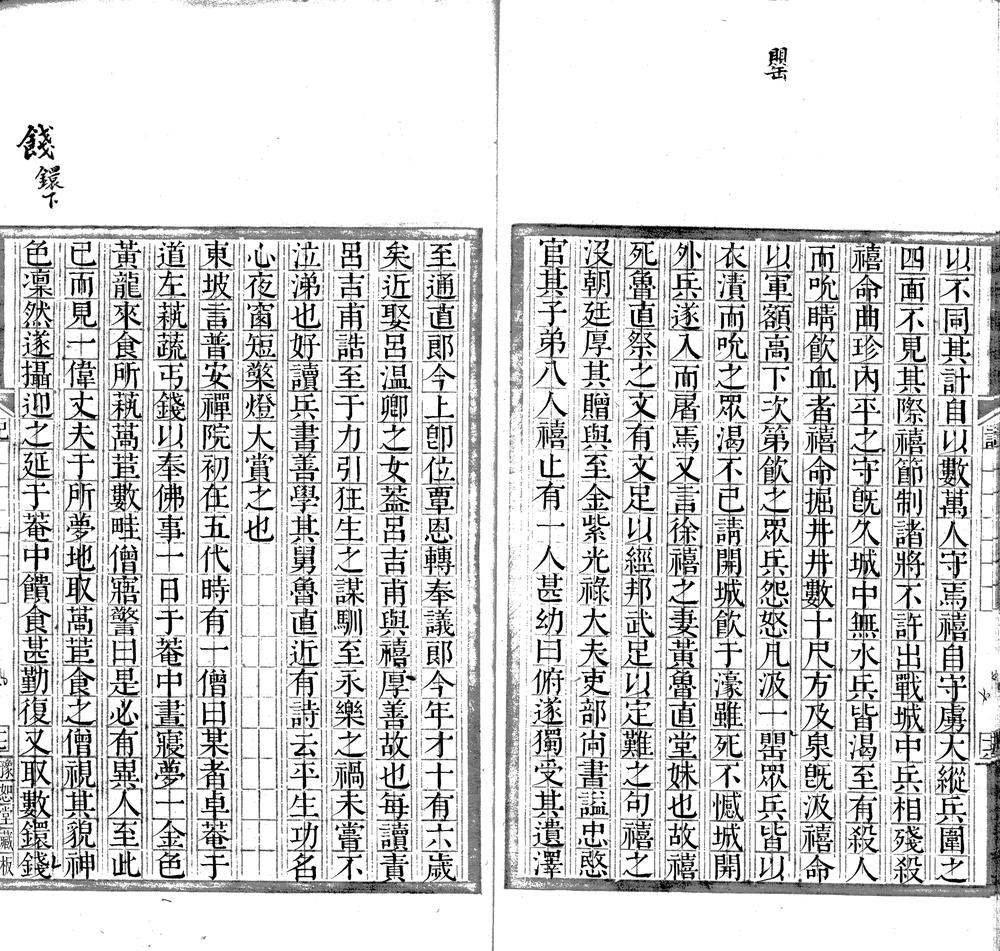 䀇
以不同其計自以數萬人守焉禧自守虜大縱兵圍之
四面不見其際禧節制諸將不許出戰城中兵相殘殺
禧命曲珍內平之守旣久城中無水兵皆渴至有殺人
而吮睛飮血者禧命掘井井數十尺方及泉旣汲禧命
以軍額高下次第飮之眾兵怨怒凡汲一罌眾兵皆以
衣漬而吮之眾渴不已請開城飮于濠雖死不憾城開
外兵遂入而屠焉又言徐禧之妻黃魯直堂妹也故禧
死魯直祭之文有文足以經邦武足以定難之句禧之
沒朝廷厚其贈與至金紫光祿大夫吏部尙書諡忠愍
官其子弟八人禧止有一人甚幼曰俯遂獨受其遺澤
至通直郎今上卽位覃恩轉奉議郎今年才十有六歲
矣近娶呂溫卿之女蓋呂吉甫與禧厚善故也每讀責
呂吉甫誥至于力引狂生之謀馴至永樂之禍未嘗不
泣涕也好讀兵書善學其舅魯直近有詩云平生功名
心夜窗短檠燈大賞之也
東坡言普安禪院初在五代時有一僧曰某者卓菴于
道左蓺蔬丐錢以奉佛事一日于菴中晝寢夢一金色
黃龍來食所蓺萵苣數畦僧寤驚曰是必有異人至此
已而見一偉丈夫于所夢地取萵苣食之僧視其貌神
色凜然遂攝迎之延于菴中饋食甚勤復又取數鐶錢
記
豫恕堂藏板
餞
鐶下